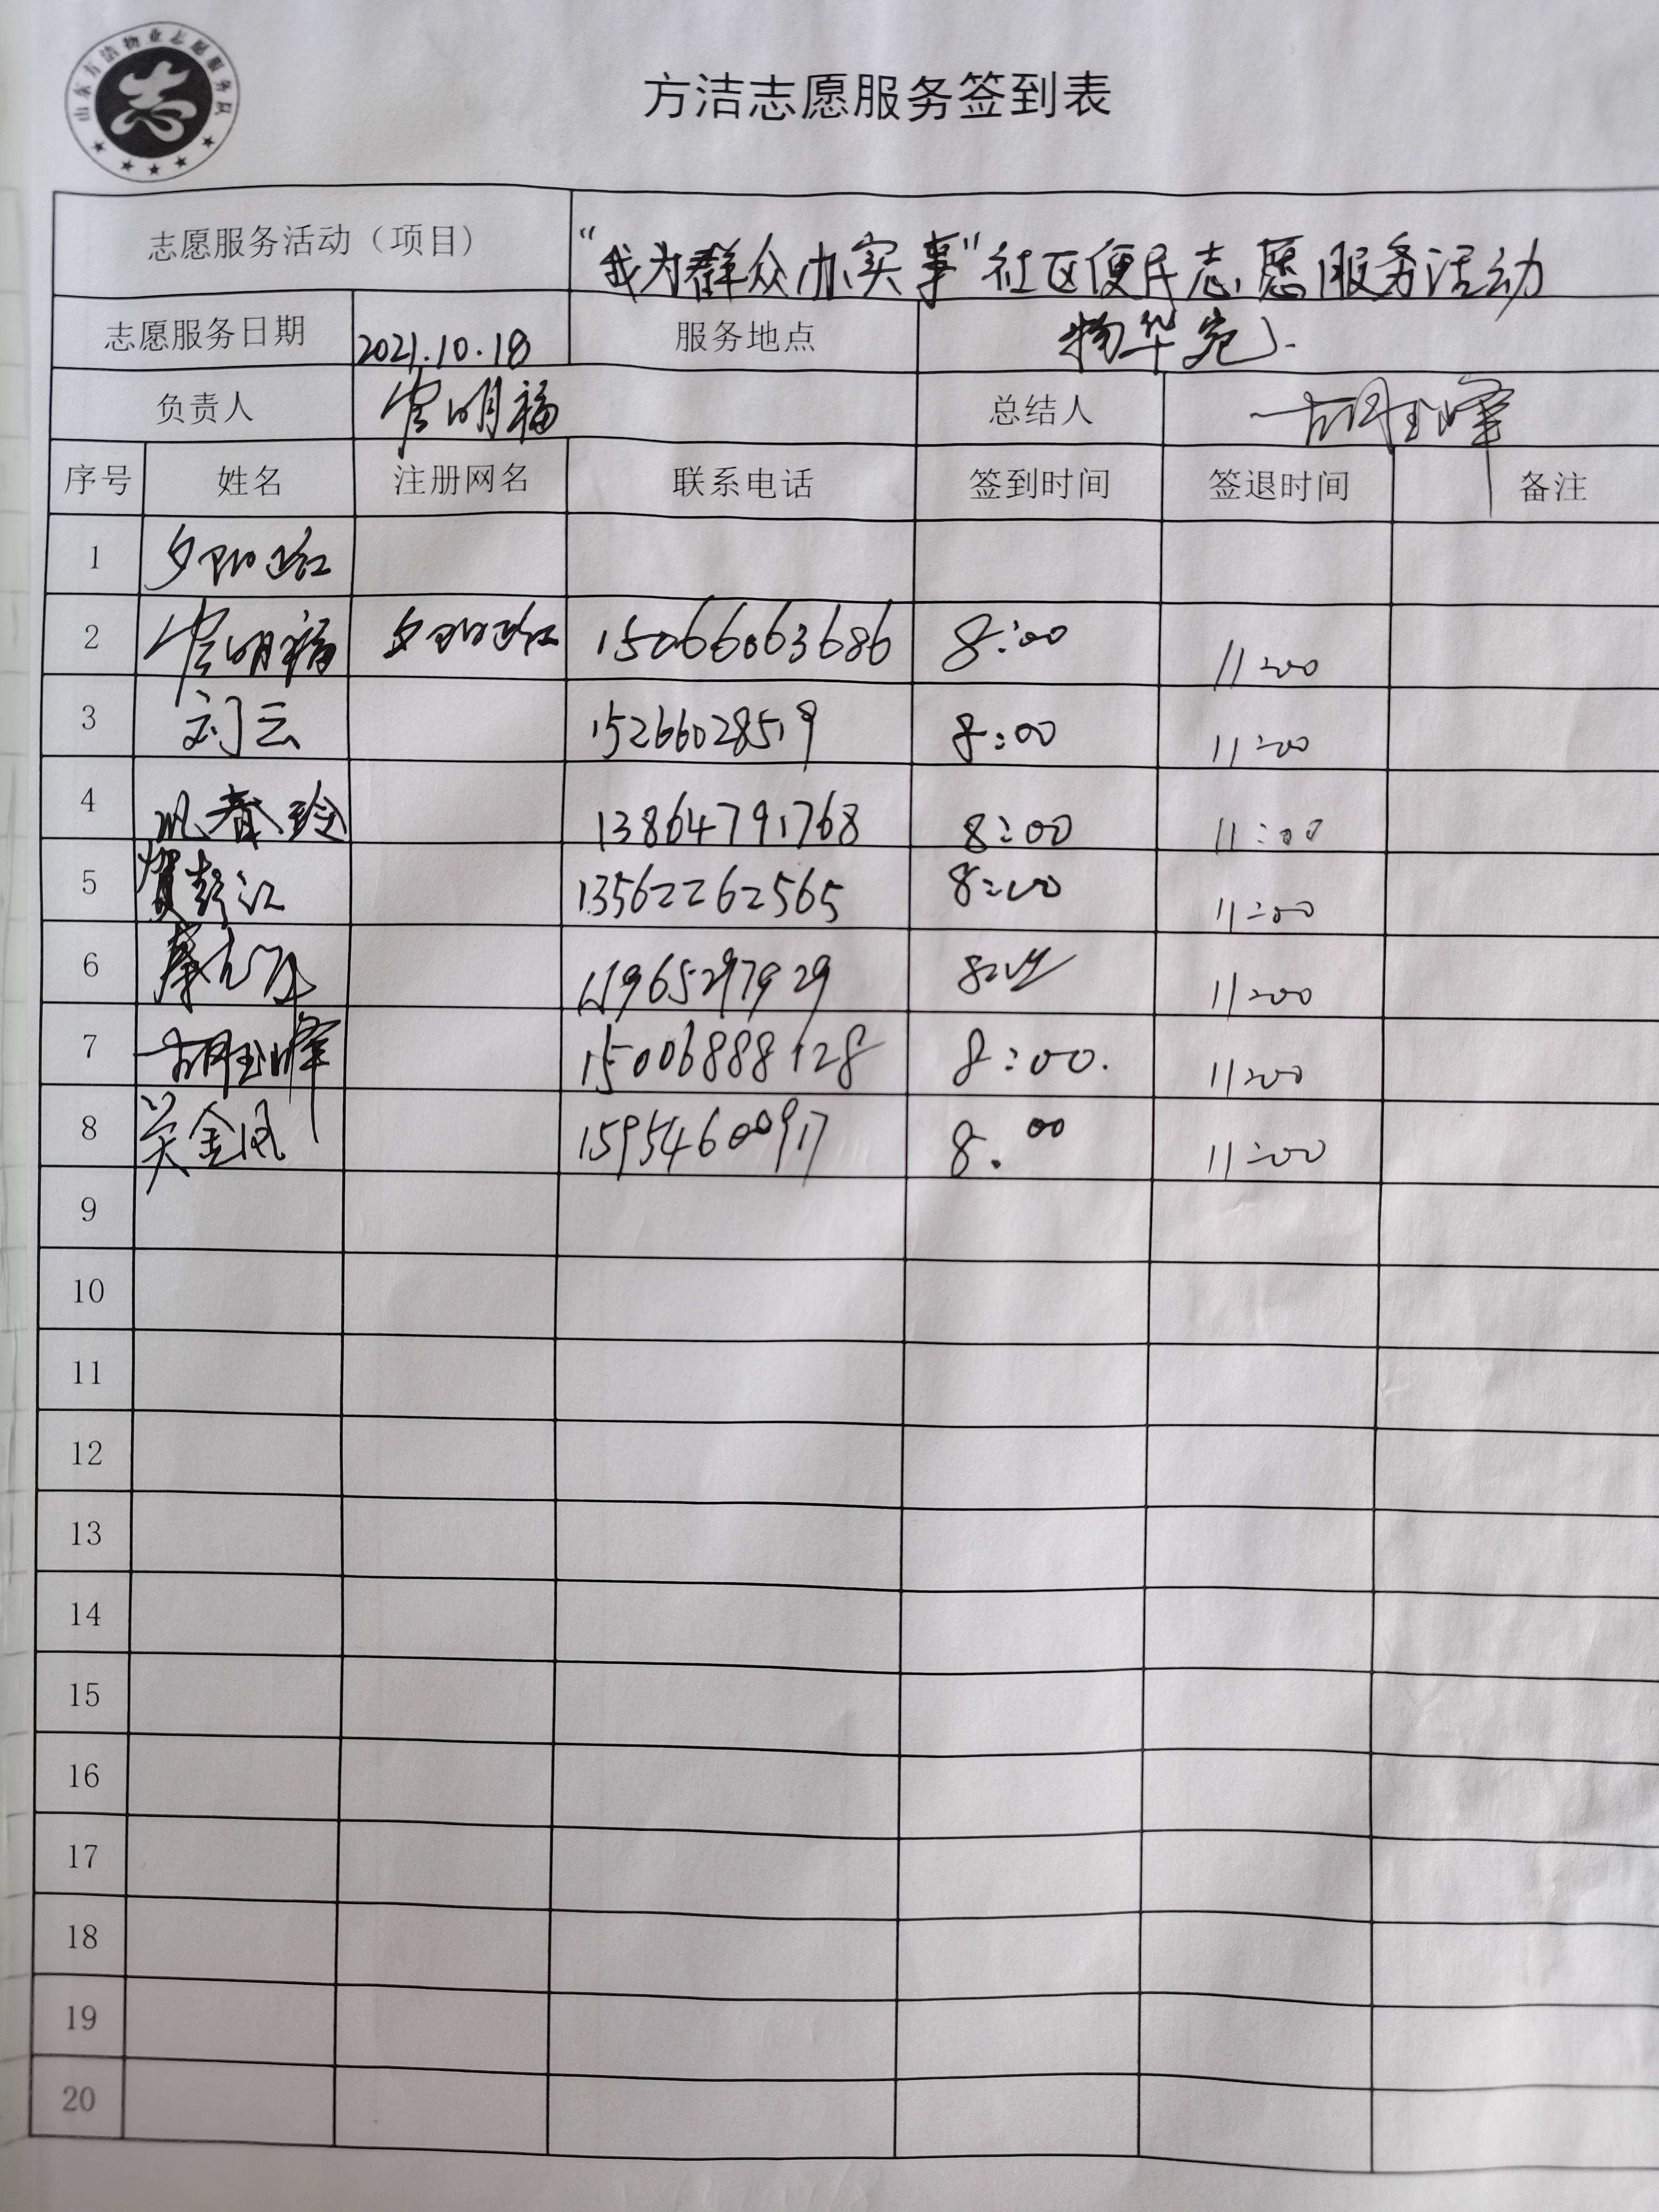 山东方洁物业志愿服务队
志
方洁志愿服务签到表
志愿服务活动（项目） “我为群众办实事”社区便民志愿服务活动
志愿服务日期 2021.10.18 服务地点 物华苑
负责人 明福 总结人 胡玉峰
序号 姓名 注册网名 联系电话 签到时间 签退时间 备注
1 夕阳这红
2 明福 夕阳这红 15066063686 8:00 11:00
3 刘云 15266028519 8:00 11:00
4 春玲 13864791768 8:00 11:00
5 贺彭江 13562262565 8:00 11:00
6 8:00 11:00
7 胡玉峰 15006888128 8:00. 11:00
8 吴金凤 15954600917 8.00 11:00
9
10
11
12
13
14
15
16
17
18
19
20